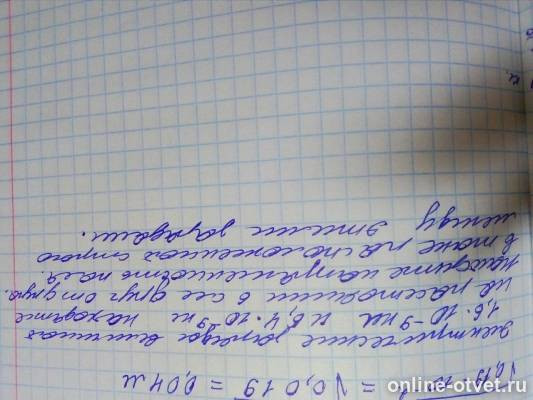 √0,19·10 = √0,019 = 0,04 м
электрические заряды величиной
1,6·10⁻⁹ кл и 6,4·10⁻⁹ находятся
на расстоянии 6 см друг от друга.
Найдите напряженность поля
в точке расположенной строго
между этими зарядами.
online-otvet.ru